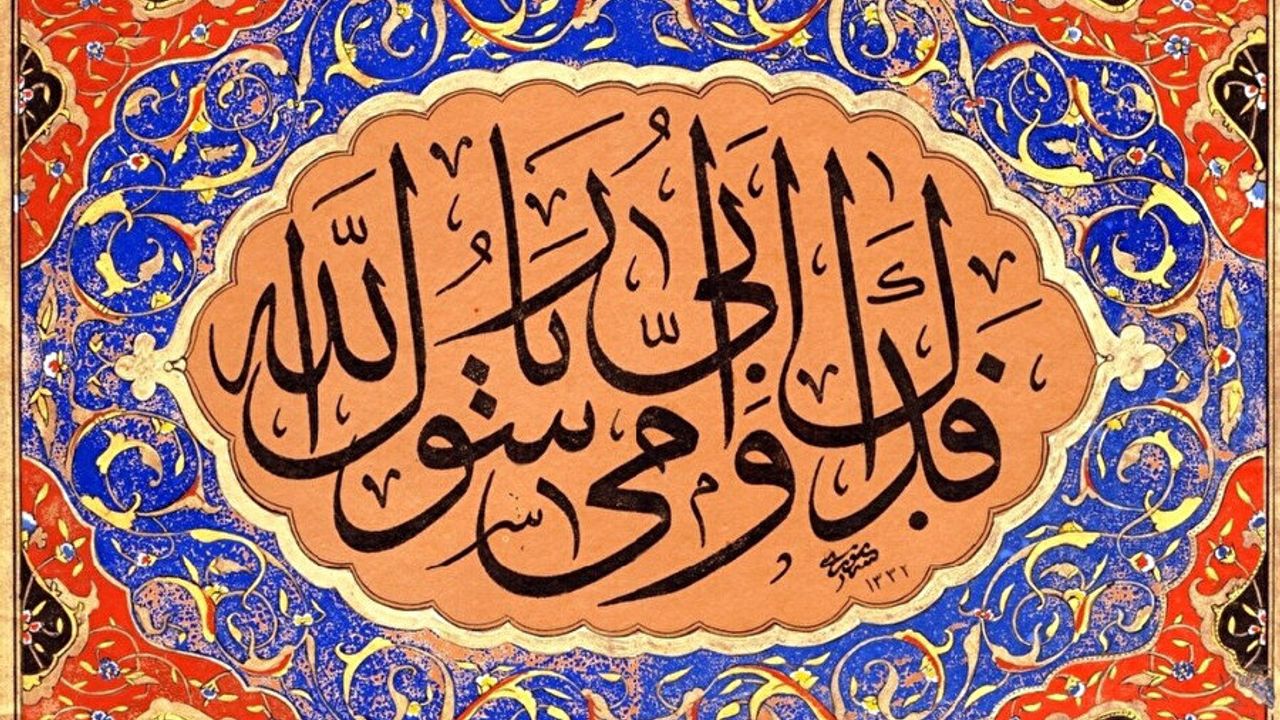 فداك ابي وامي يا رسول الله
١٣٣٢